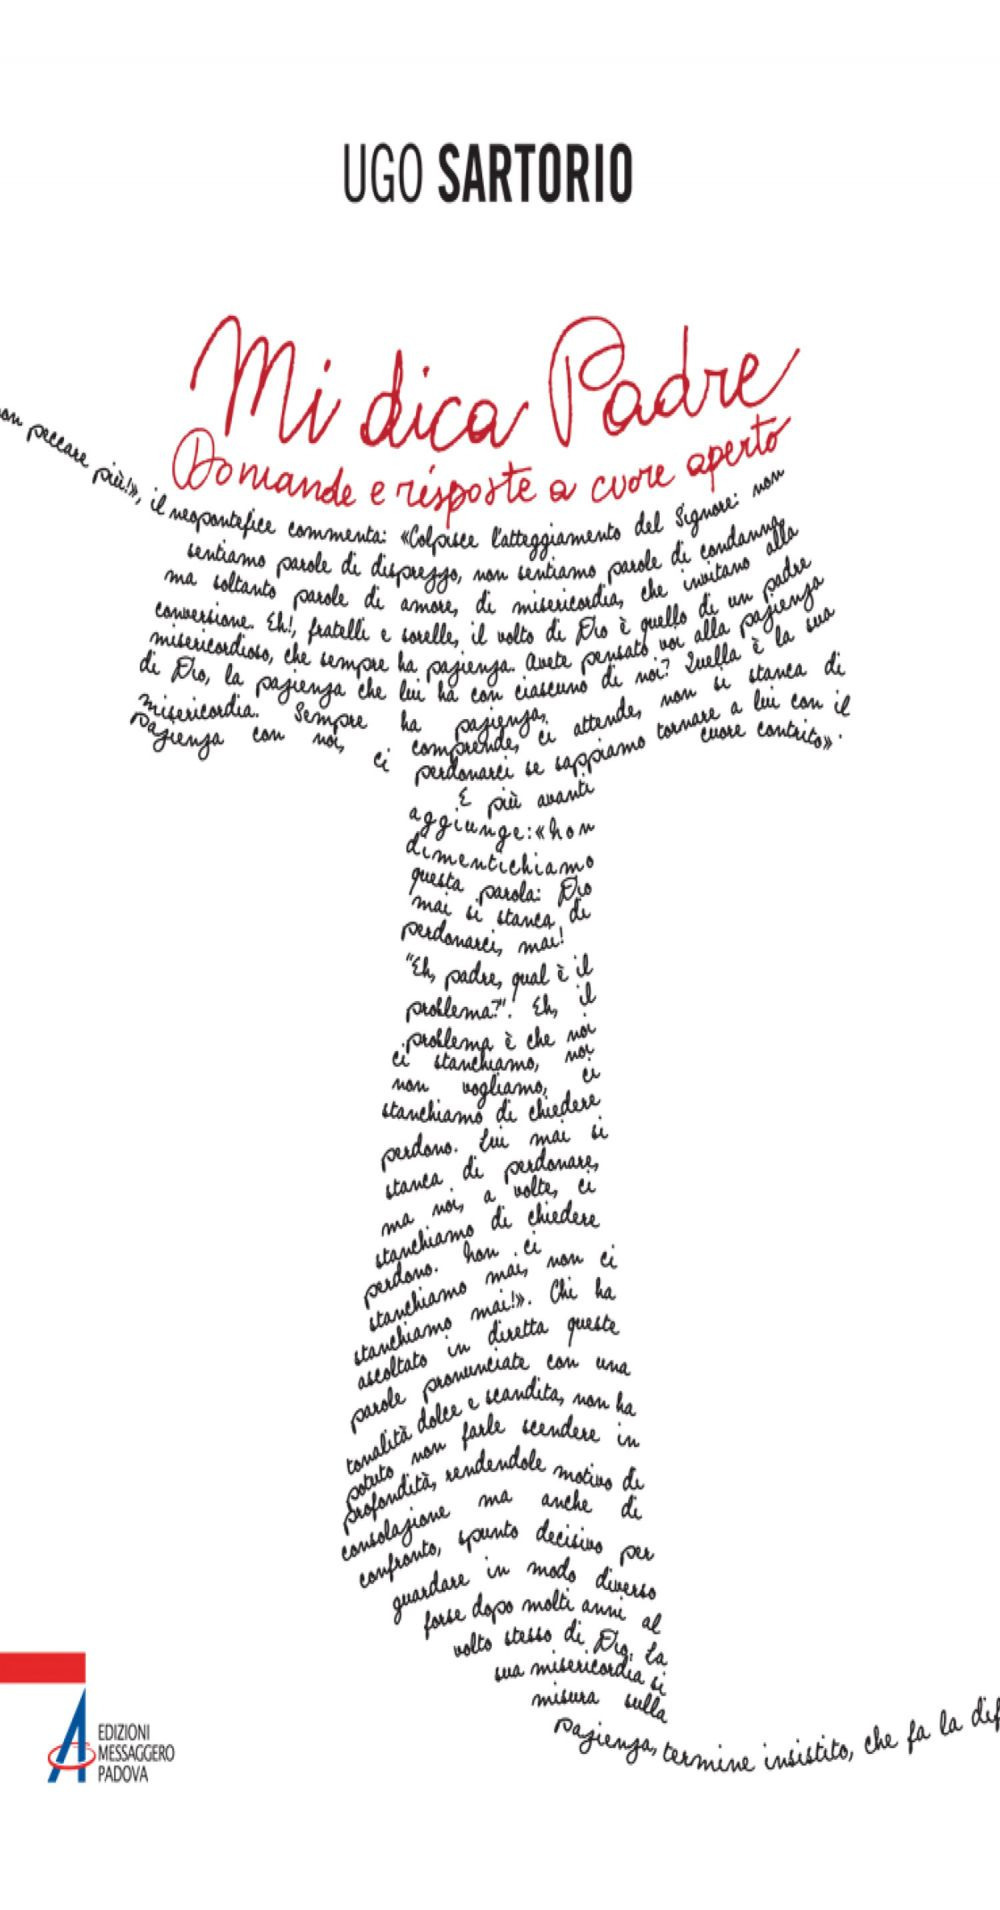 UGO SARTORIO
Mi dica Padre
Domande e risposte a cuore aperto
non peccare più!», il neopontefice commenta: «Colpisce l'atteggiamento del Signore: non
sentiamo parole di disprezzo, non sentiamo parole di condanna,
ma soltanto parole di amore, di misericordia, che invitano alla
conversione. Eh!, fratelli e sorelle, il volto di Dio è quello di un padre
misericordioso, che sempre ha pazienza. Avete pensato voi alla pazienza
di Dio, la pazienza che lui ha con ciascuno di noi? Quella è la sua
misericordia. Sempre ha pazienza,
pazienza con noi, ci comprende, ci attende, non si stanca di
perdonarci se sappiamo tornare a lui con il
cuore contrito».
E più avanti
aggiunge: «non
dimentichiamo
questa parola: Dio
mai si stanca di
perdonarci, mai!
"Eh, padre, qual è il
problema?". Eh, il
problema è che noi
ci stanchiamo, noi
non vogliamo, ci
stanchiamo di chiedere
perdono. Lui mai si
stanca di perdonare,
ma noi, a volte, ci
stanchiamo di chiedere
perdono. Non ci
stanchiamo mai, non ci
stanchiamo mai!». Chi ha
ascoltato in diretta queste
parole pronunciate con una
tonalità dolce e scandita, non ha
potuto non farle scendere in
profondità, rendendole motivo di
consolazione ma anche di
confronto, spunto decisivo per
guardare in modo diverso
forse dopo molti anni al
volto stesso di Dio. La
sua misericordia si
misura sulla
pazienza, termine insistito, che fa la dif
EDIZIONI
MESSAGGERO
PADOVA